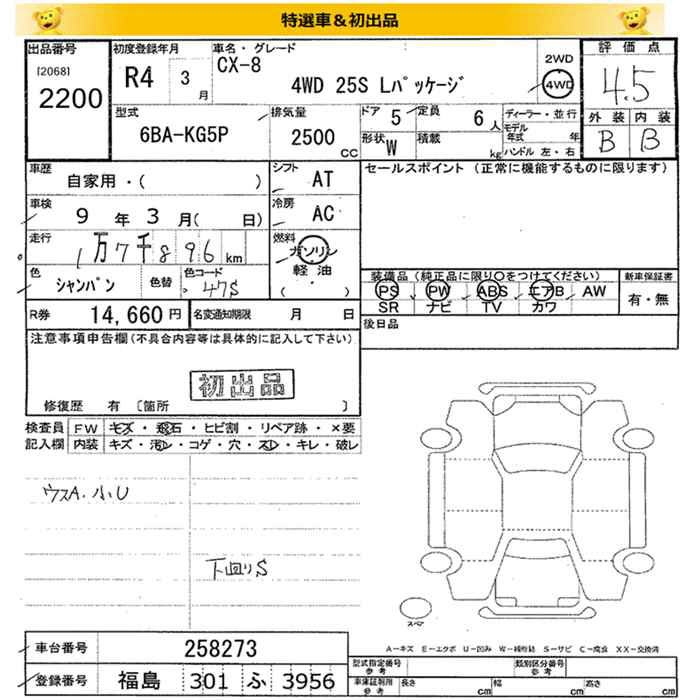 特選車&初出品
出品番号
[2068]
2200
初度登録年月
R4 3 月
車名・グレード
CX-8
4WD 25S Lパッケージ
2WD
4WD
評価点
4.5
外装 内装
B B
型式
6BA-KG5P
排気量
2500 CC
ドア 5
定員 6 人
形状 W
積載 kg
ディーラー・並行
モデル年式 年
ハンドル 左・右
車歴
自家用・( )
シフト
AT
セールスポイント (正常に機能するものに限ります)
車検
9 年 3 月( 日)
冷房
AC
走行
1万7千896 km
燃料
ガソリン
軽油
( ・ )
色
シャンパン
色替
色コード
47S
装備品 (純正品に限り○をつけてください)
PS PW ABS エアB AW
SR ナビ TV カワ
新車保証書
有・無
R券 14,660 円
名変通知期限 月 日
後日品
注意事項申告欄(不具合内容等は具体的に記入して下さい)
初出品
修復歴 有 〔箇所 〕
検査員記入欄
FW キズ・飛石・ヒビ割・リペア跡・×要
内装 キズ・汚レ・コゲ・穴・スレ・キレ・破レ
ウスA.小U
下回りS
スペア
A－キズ E－エクボ U－凹み W－補修跡 S－サビ C－腐食 XX－交換済
車台番号 258273
登録番号 福島 301 ふ 3956
型式指定番号 参考
類別区分番号 参考
車庫証明用 参考
長さ cm 幅 cm 高さ cm